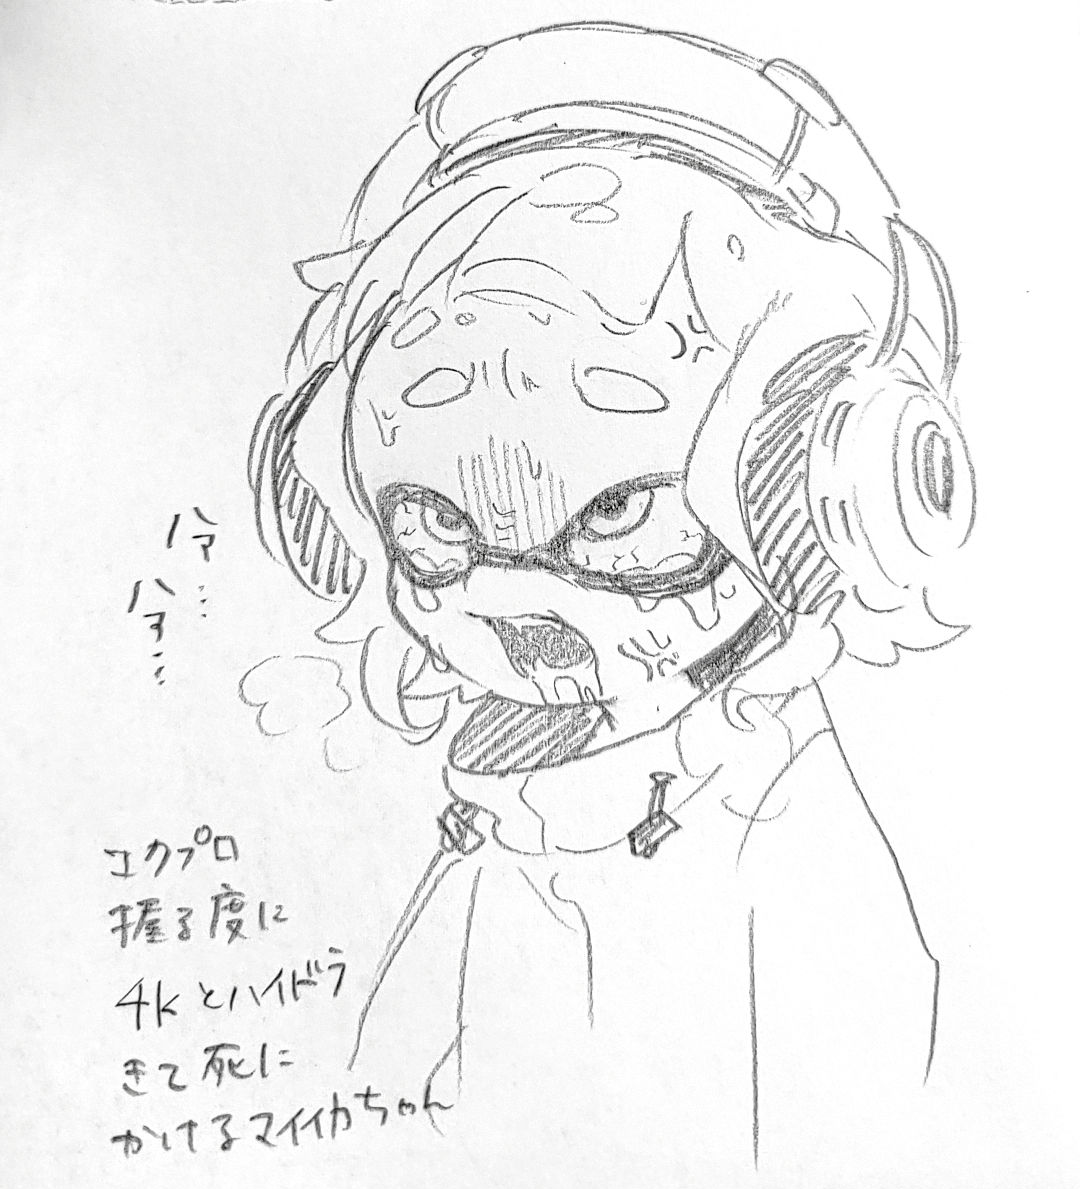 ハァ…
ハァ…
エクプロ
握る度に
4kとハイドラ
きて死に
かけるマイイカちゃん